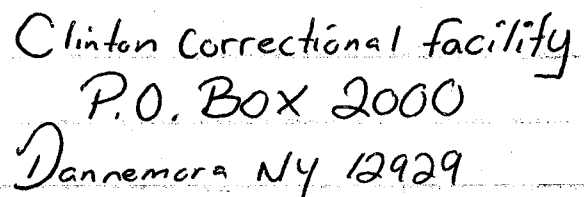 Clinton Correctional facility
P.O. Box 2000
Dannemora NY 12929